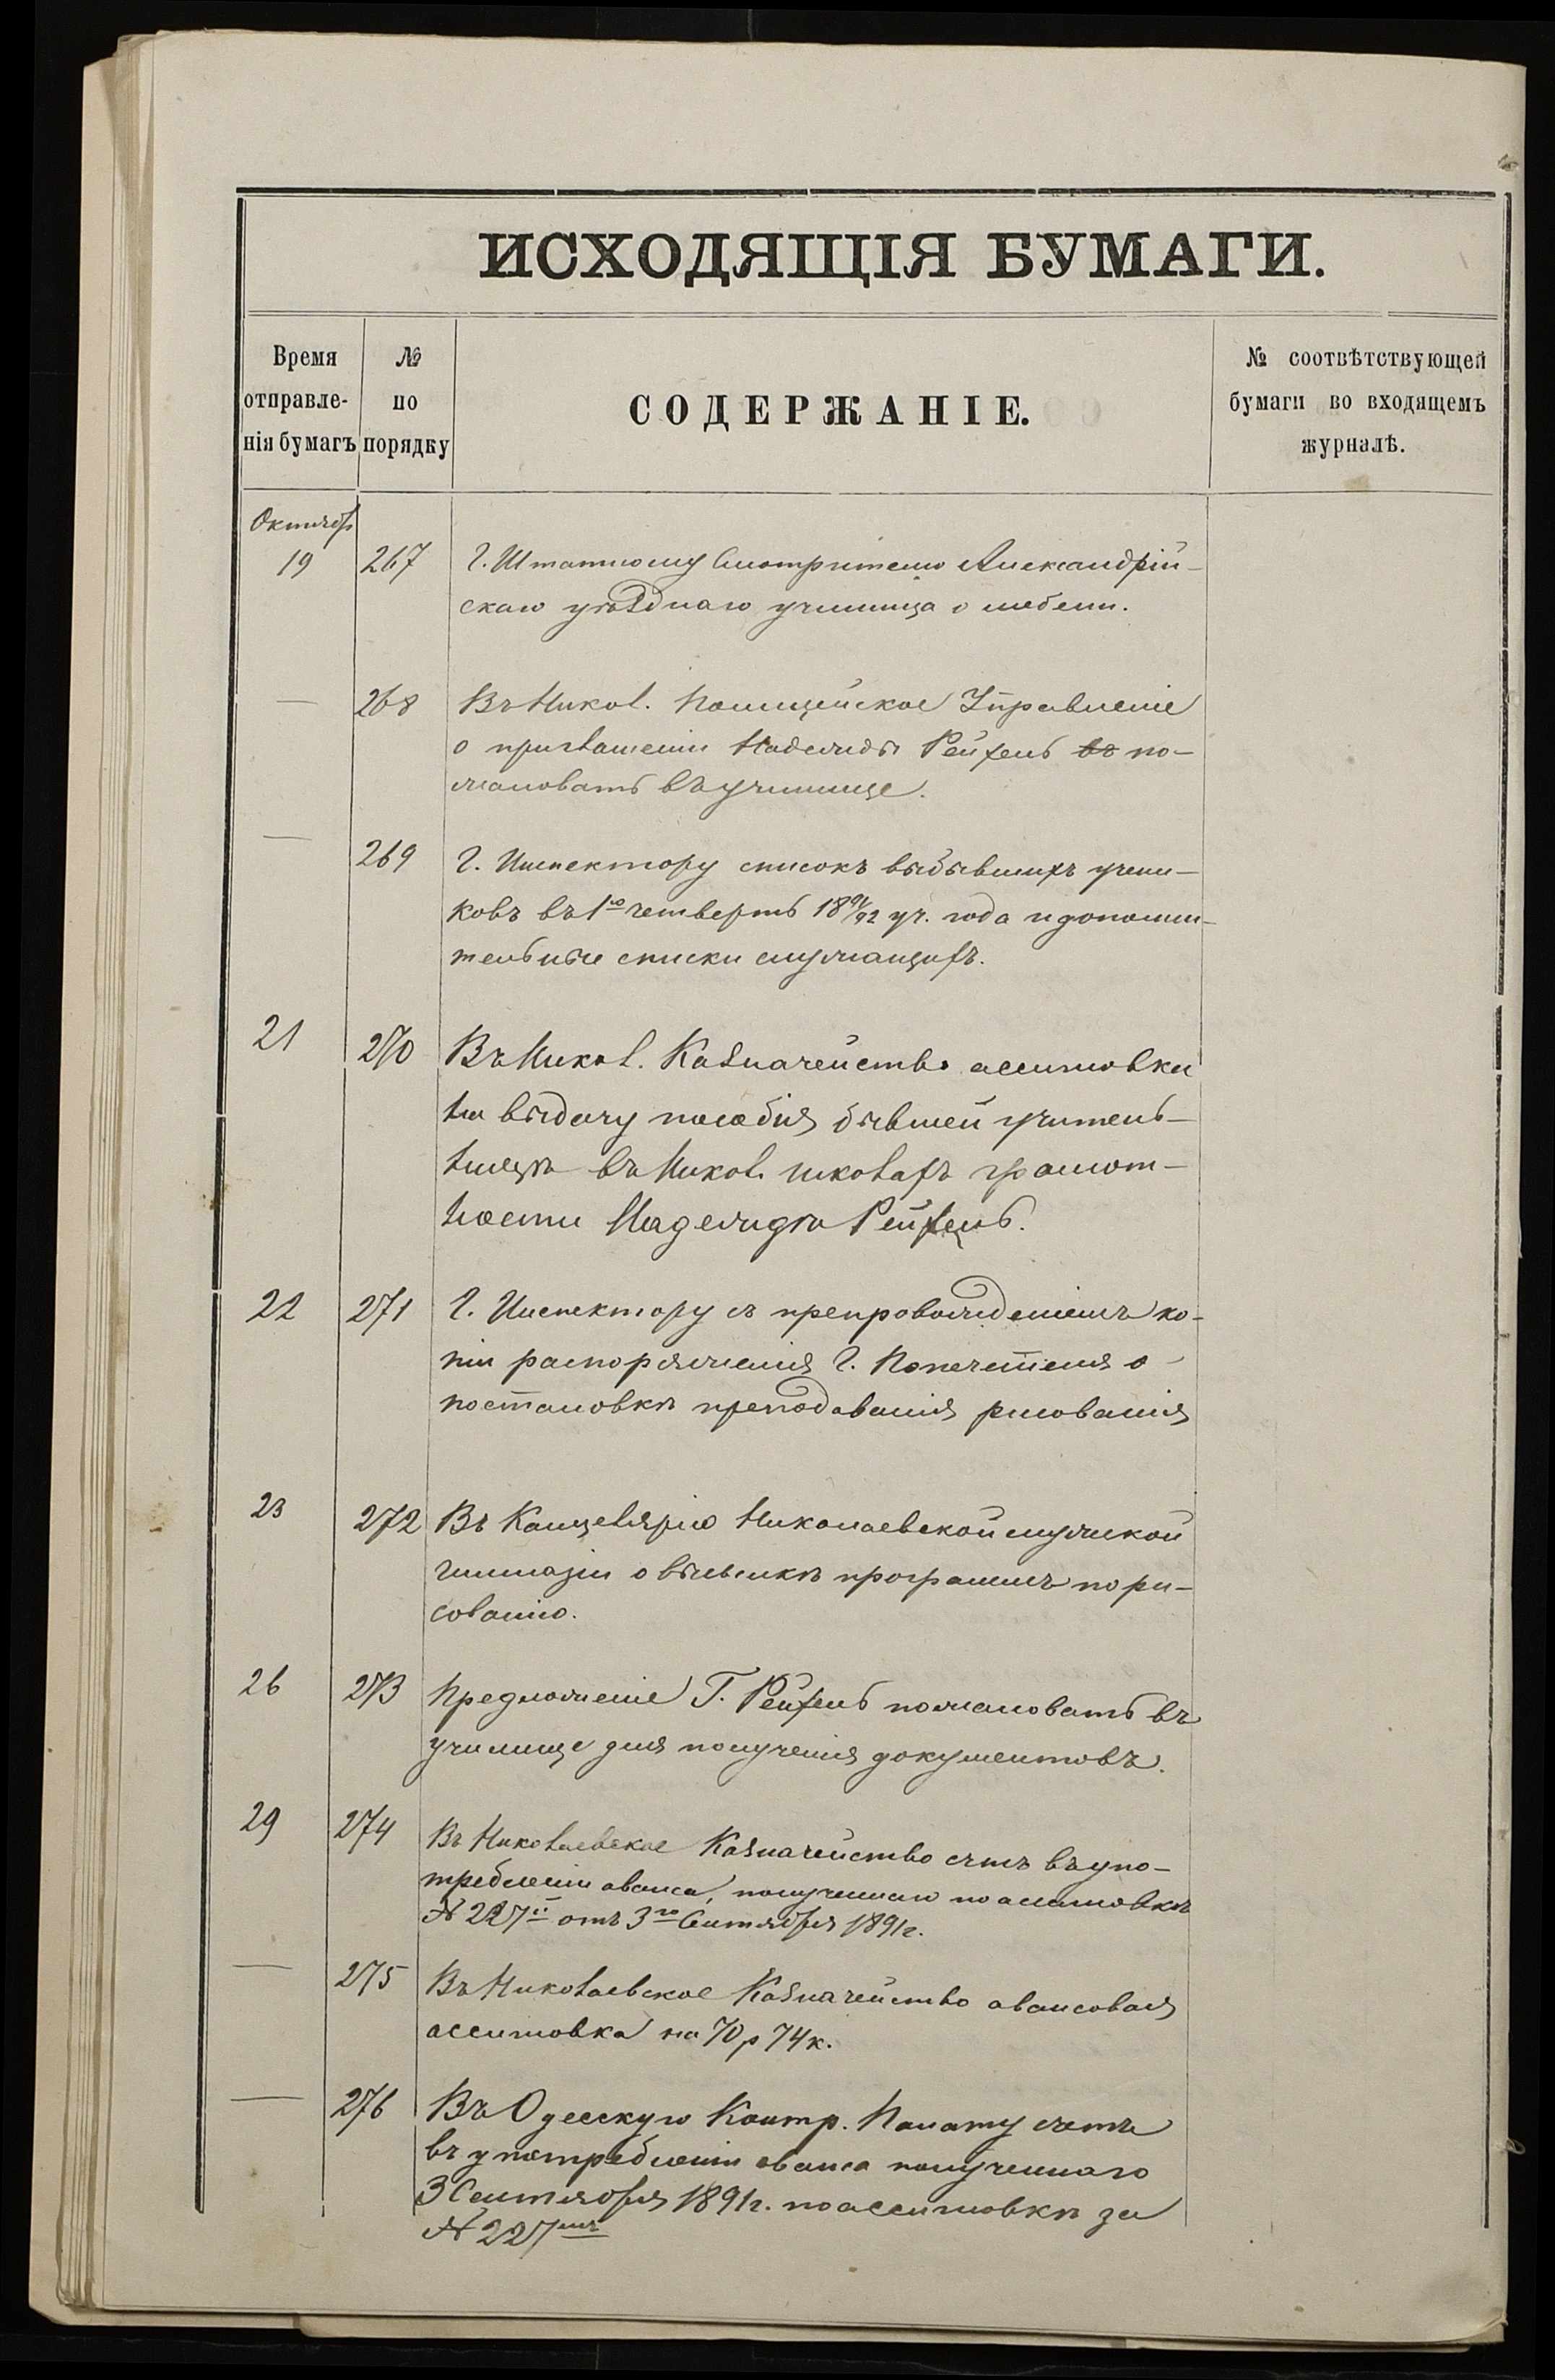 ИСХОДЯЩІЯ БУМАГИ.
Время отправле- нія бумагъ
№ по порядку
СОДЕРЖАНІЕ.
№ соотвѣтствующей бумаги во входящемъ журналѣ.
Октябр
19 267 Г. Штатному Смотрителю Александрій-
скаго уѣзднаго училища о мебели.
— 268 Въ Никол. Полицейское Управленіе
о приглашеніи Надежды Рейхель въ по-
жаловать въ училище.
— 269 Г. Инспектору списокъ выбывшихъ учени-
ковъ въ 1ю четверть 1891/92 уч. года и дополни-
тельные списки служащихъ.
21 270 Въ Никол. Казначейство ассигновки
на выдачу пособія бывшей учитель-
ницѣ въ Никол. школахъ грамот-
ности Надеждѣ Рейхель.
22 271 Г. Инспектору съ препровожденіемъ ко-
піи распоряженія Г. Попечителя о
постановкѣ преподаванія рисованія
23 272 Въ Канцелярію Николаевской мужской
гимназіи о высылкѣ программъ по ри-
сованію.
26 273 Предложеніе Г. Рейхель пожаловать въ
училище для полученія документовъ.
29 274 Въ Николаевское Казначейство счетъ въ упо-
требленіи аванса, полученнаго по ассигновкѣ
№ 227й отъ 3го Сентября 1891 г.
— 275 Въ Николаевское Казначейство авансовая
ассигновка на 70 р 74 к.
— 276 Въ Одесскую Контр. Палату счетъ
въ употребленіи аванса полученнаго
3 Сентября 1891 г. по ассигновкѣ за
№ 227мъ